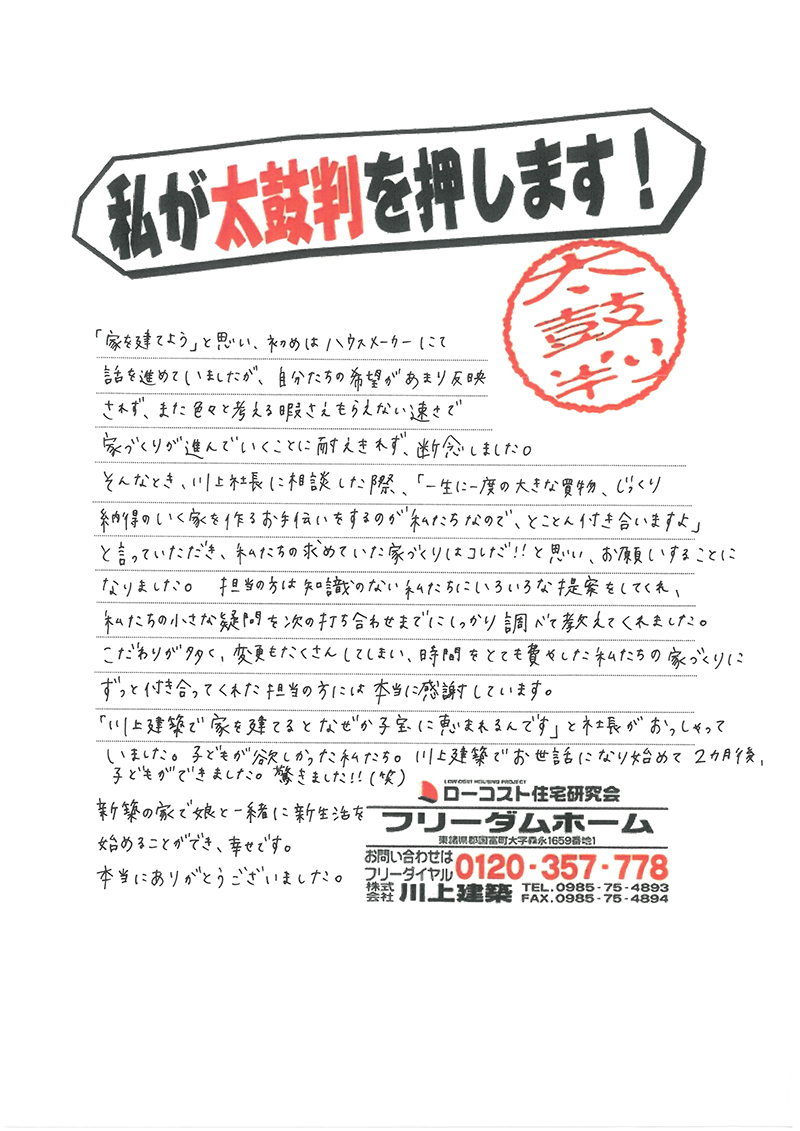 私が太鼓判を押します！
太鼓判
「家を建てよう」と思い、初めはハウスメーカーにて
話を進めていましたが、自分たちの希望があまり反映
されず、また色々と考える暇さえもらえない速さで
家づくりが進んでいくことに耐えきれず、断念しました。
そんなとき、川上社長に相談した際、「一生に一度の大きな買物、じっくり
納得のいく家を作るお手伝いをするのが私たちなので、とことん付き合いますよ」
と言っていただき、私たちの求めていた家づくりはコレだ!!と思い、お願いすることに
なりました。 担当の方は知識のない私たちにいろいろな提案をしてくれ、
私たちの小さな疑問を次の打ち合わせまでにしっかり調べて教えてくれました。
こだわりが多く、変更もたくさんしてしまい、時間をとても費やした私たちの家づくりに
ずっと付き合ってくれた担当の方には本当に感謝しています。
「川上建築で家を建てるとなぜか子宝に恵まれるんです」と社長がおっしゃって
いました。子どもが欲しかった私たち。川上建築でお世話になり始めて2カ月後、
子どもができました。驚きました!!(笑)
新築の家で娘と一緒に新生活を
始めることができ、幸せです。
本当にありがとうございました。
LOW-COST HOUSING PROJECT
ローコスト住宅研究会
フリーダムホーム
東諸県郡国富町大字森永1659番地1
お問い合わせは
フリーダイヤル 0120-357-778
株式会社 川上建築 TEL.0985-75-4893
FAX.0985-75-4894